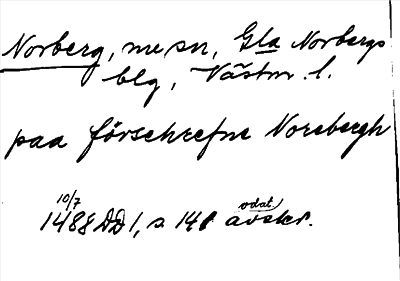 Norberg, sn, Gla Norbergs
blg, Västm. l.
paa förschrefne Norebergh
10/7 odat.
1488 DD 1, s. 141 avskr.